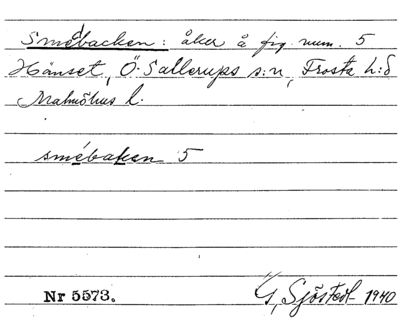 Smedbacken: åker å fig. num. 5
Hänset, Ö. Sallerups s:n, Frosta h:d
Malmöhus l.
smébaken 5
Nr 5573.
G, Sjöstedt 1940